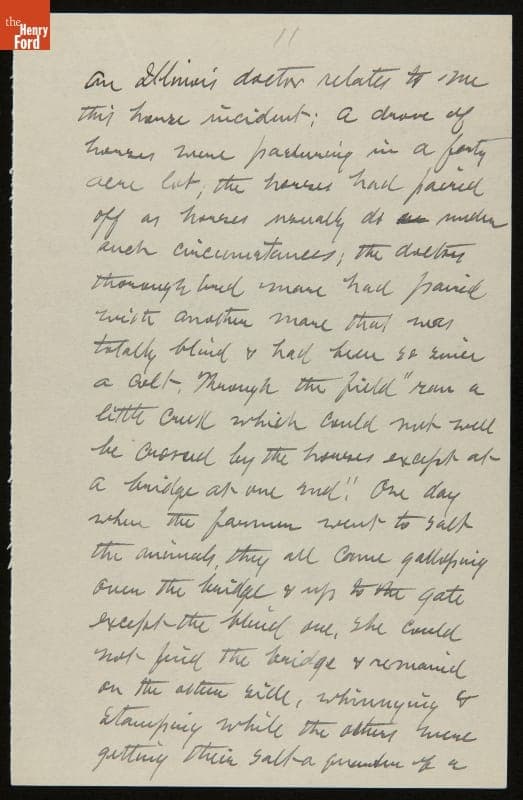 the
Henry
Ford
11
An Illinois doctor relates to me
this horse incident; A drove of
horses were pasturing in a forty
acre lot; the horses had paired
off as horses usually do under
such circumstances; the doctors
thorough bred mare had paired
with another mare that was
totally blind & had been so since
a colt. Through the field "ran a
little creek which could not well
be crossed by the horses except at
a bridge at one end". One day
when the farmer went to salt
the animals, they all came galloping
over the bridge & up to the gate
except the blind one, she could
not find the bridge & remained
on the other side, whinnying &
stamping while the others were
getting their salt a quarter of a